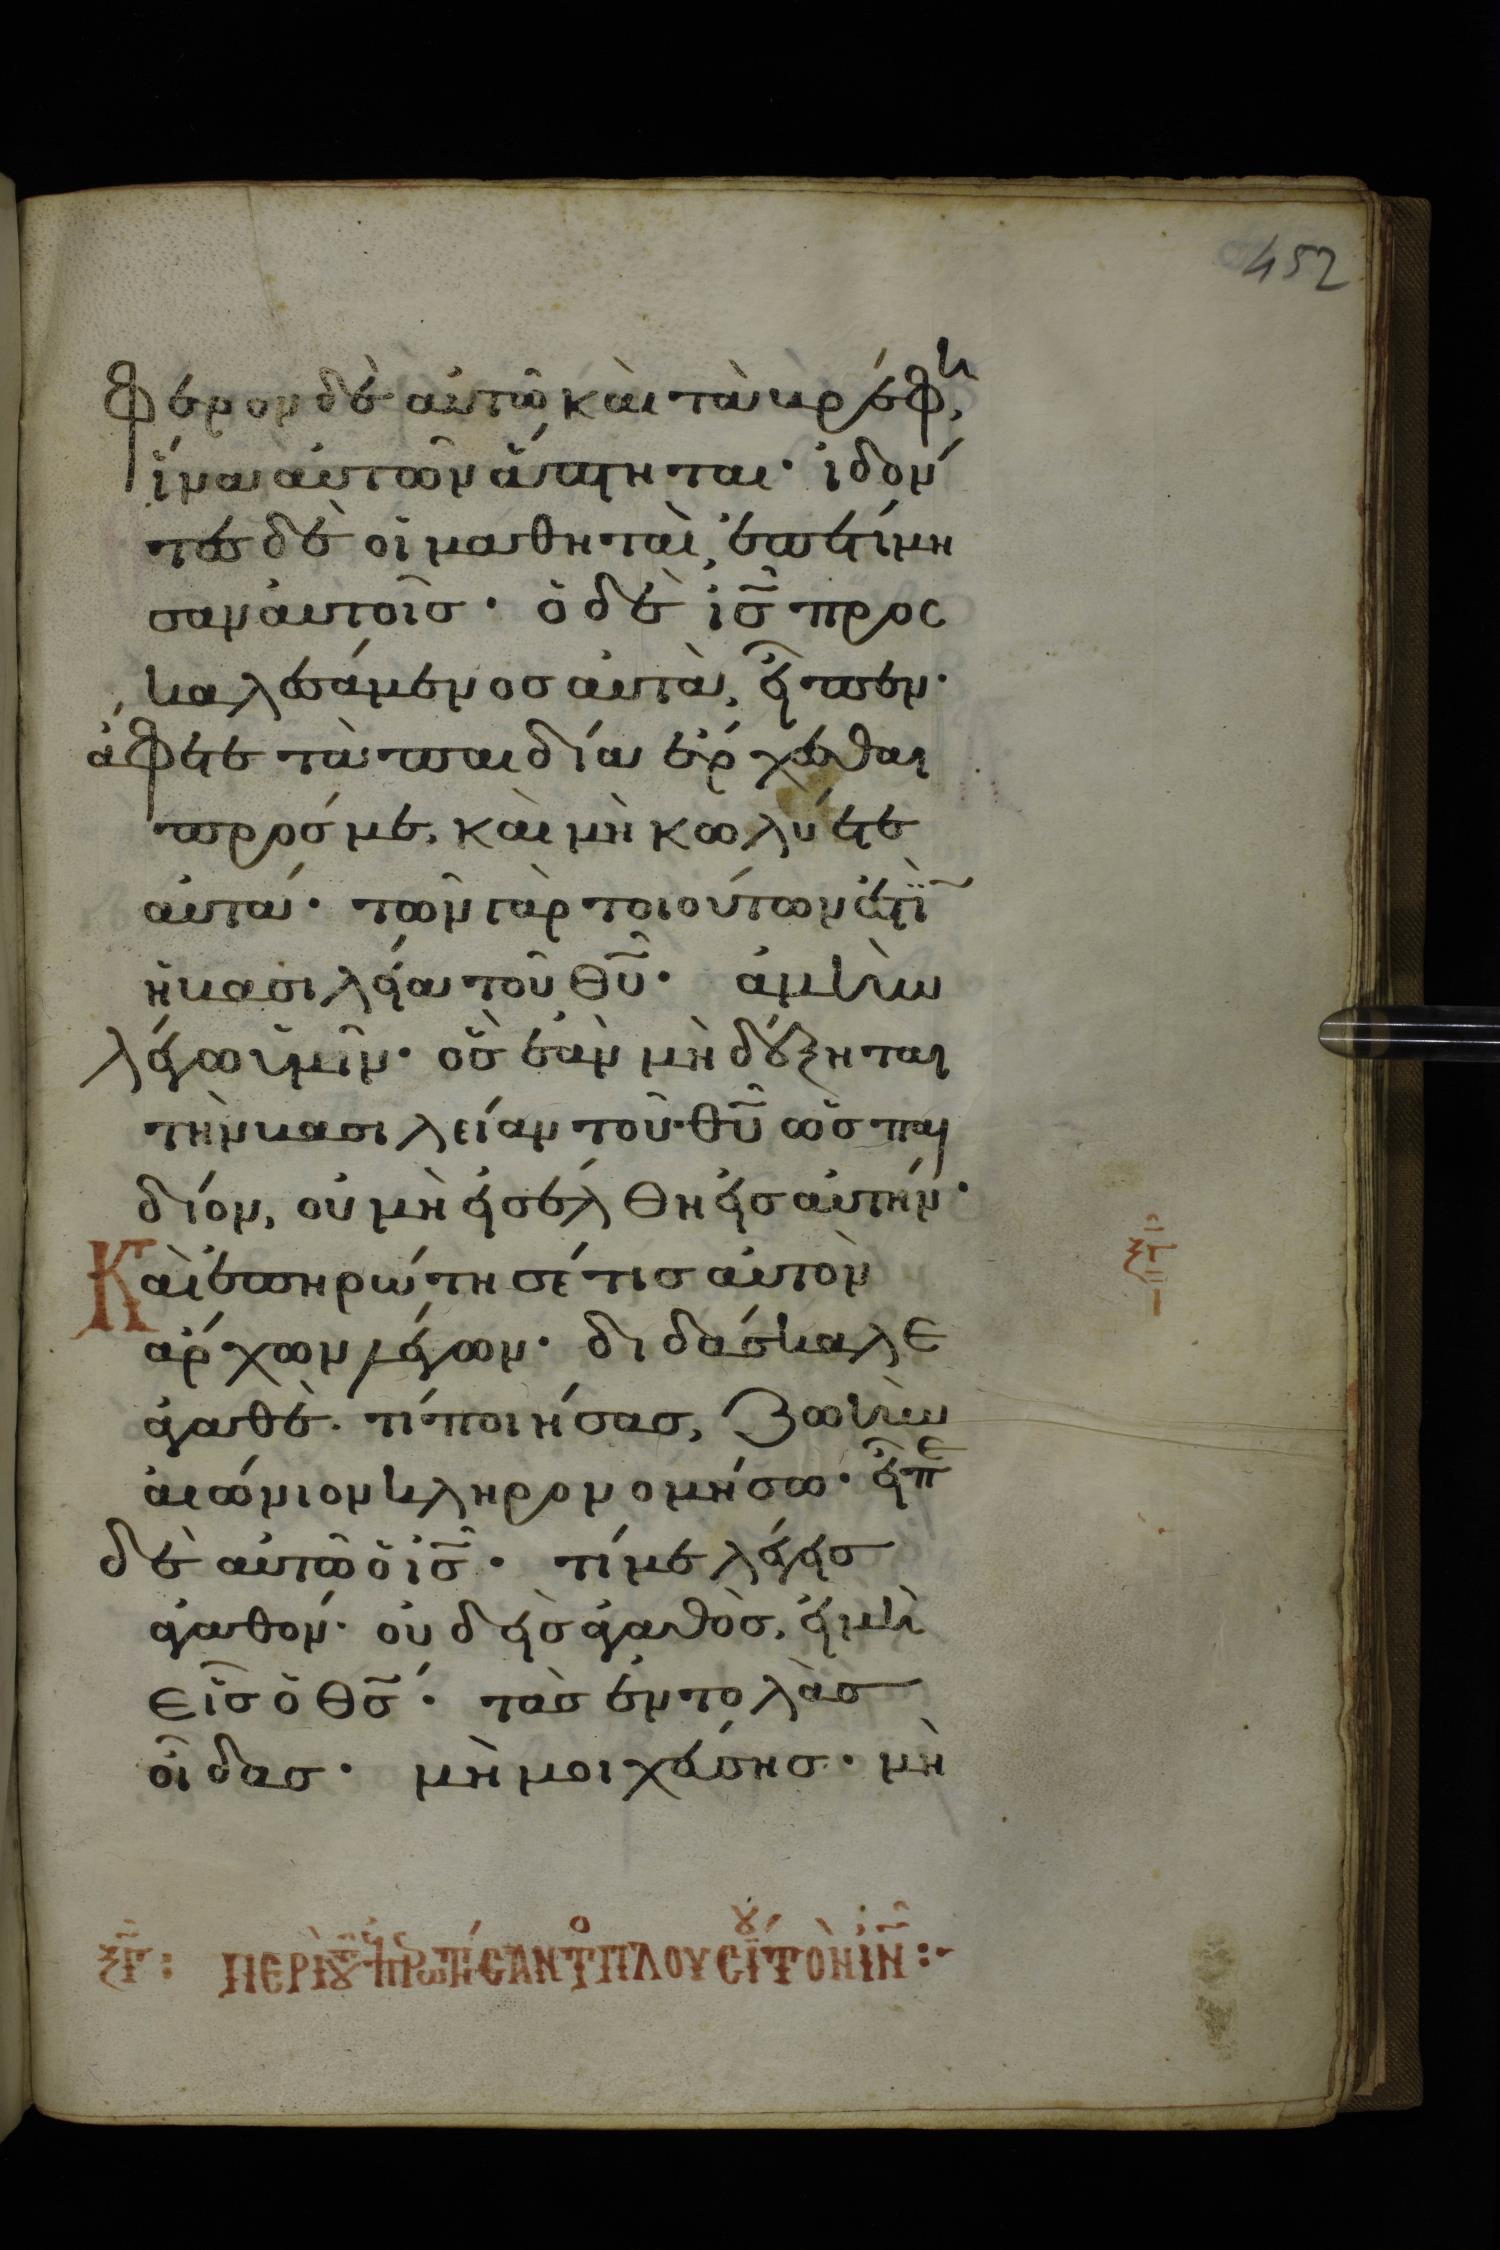 452
φέρον δὲ αὐτῶ καὶ τὰ βρέφη,
ἵνα αὐτῶν ἅπτηται· ἰδόν
τες δὲ οἱ μαθηταὶ, ἐπετίμη
σαν αὐτοῖσ· ὁ δὲ ἰσ̅ προσ
καλεσάμενοσ αὐτὰ, εἶπεν·
ἄφετε τὰ παιδία ἔρχεσθαι
πρόσ με, καὶ μὴ κωλύετε
αὐτά· τῶν γὰρ τοιούτων ἐστὶ̈ν
ἡ βασιλεία τοῦ θυ̅· ἀμὴν
λέγω ὑμῖν· ὃσ ἐὰν μὴ δέξηται
τὴν βασιλείαν τοῦ θυ̅ ὡσ παι
δίον, οὐ μὴ εἰσέλθη εἰσ αὐτήν·
Καὶ ἐπηρώτησέ τισ αὐτὸν
ἄρχων λέγων· διδάσκαλε
ἀγαθὲ· τί ποιήσασ, ζωὴν
αἰώνιον κληρονομήσω· εἶπε
δὲ αὐτῶ ὁ ἰσ̅· τί με λέγεισ
ἀγαθόν· οὐδεὶσ ἀγαθὸσ, εἰ μὴ
εἷσ ὁ θσ̅· τὰσ ἐντολὰσ
οἶδασ· μὴ μοιχεύσησ· μὴ
ξγ̅
ξγ̅: ΠΕΡὶ τοῦ ἐΠΕΡΩΤήCΑΝΤος ΠΛΟΥCίου ΤὸΝ ἰΝ̅:·